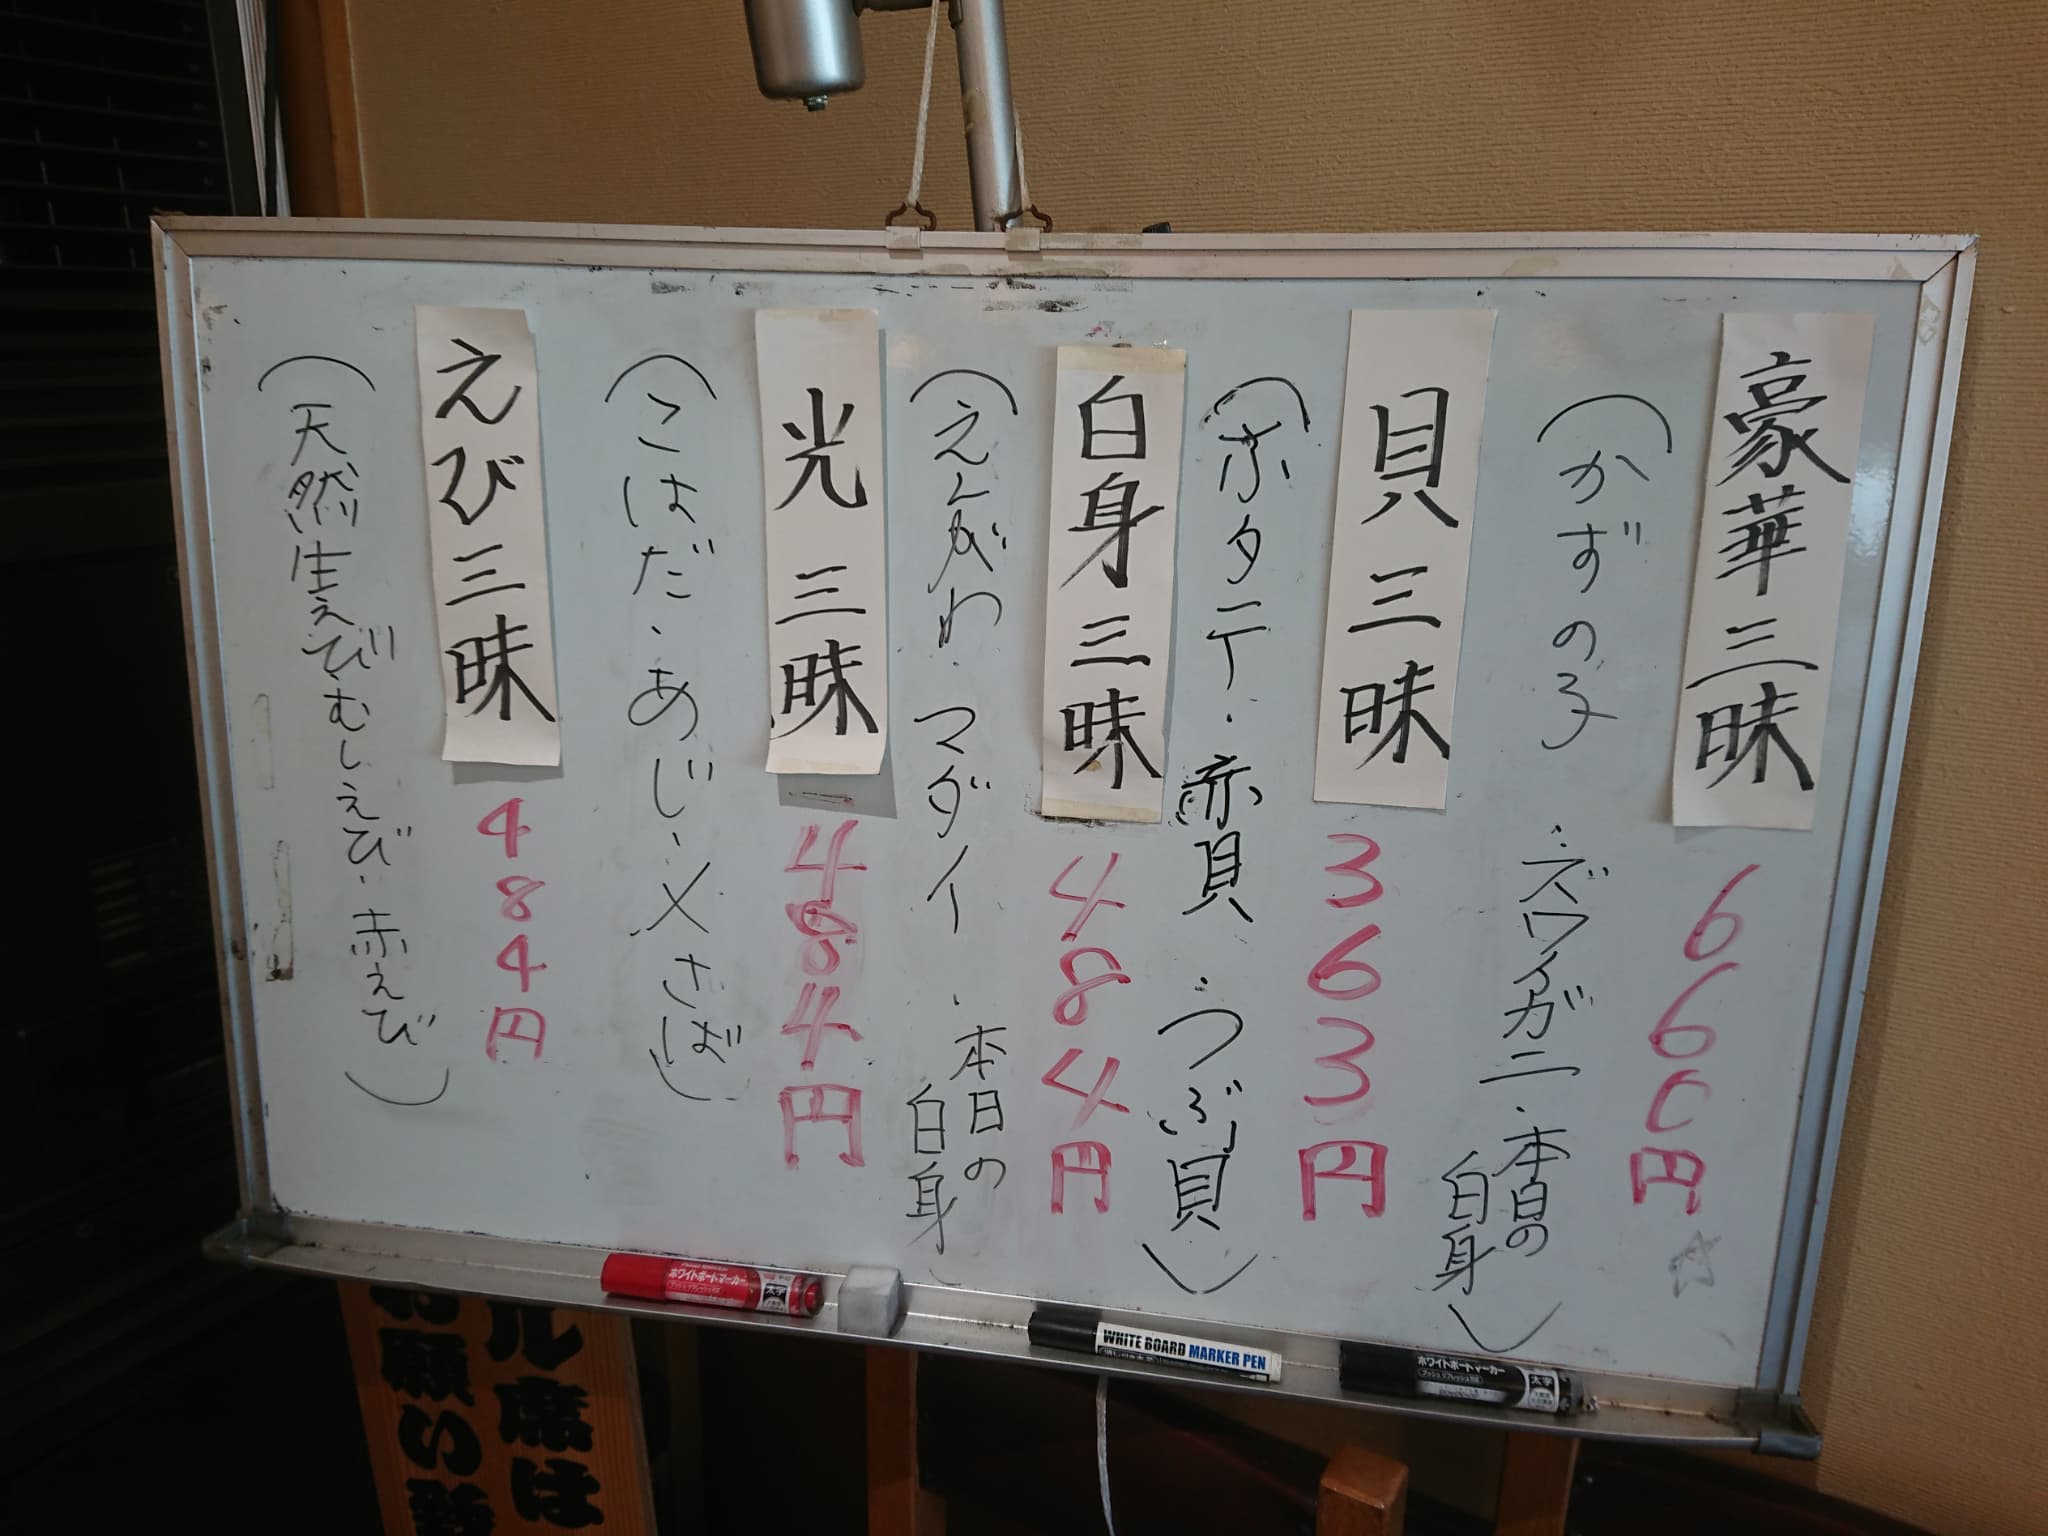 豪華三昧
660円
(かずの子・ズワイガニ・本日の
白身)
貝三昧
363円
(ホタテ・赤貝・つぶ貝)
白身三昧
484円
(えんがわ・マダイ・本日の
白身
光三昧
484円
(こはだ・あじ・〆さば)
えび三昧
484円
(天然生えび・むしえび・赤えび)
ホワイトボードマーカー
太字
WHITE BOARD MARKER PEN
ホワイトボードマーカー
太字
ル席は
お願い致